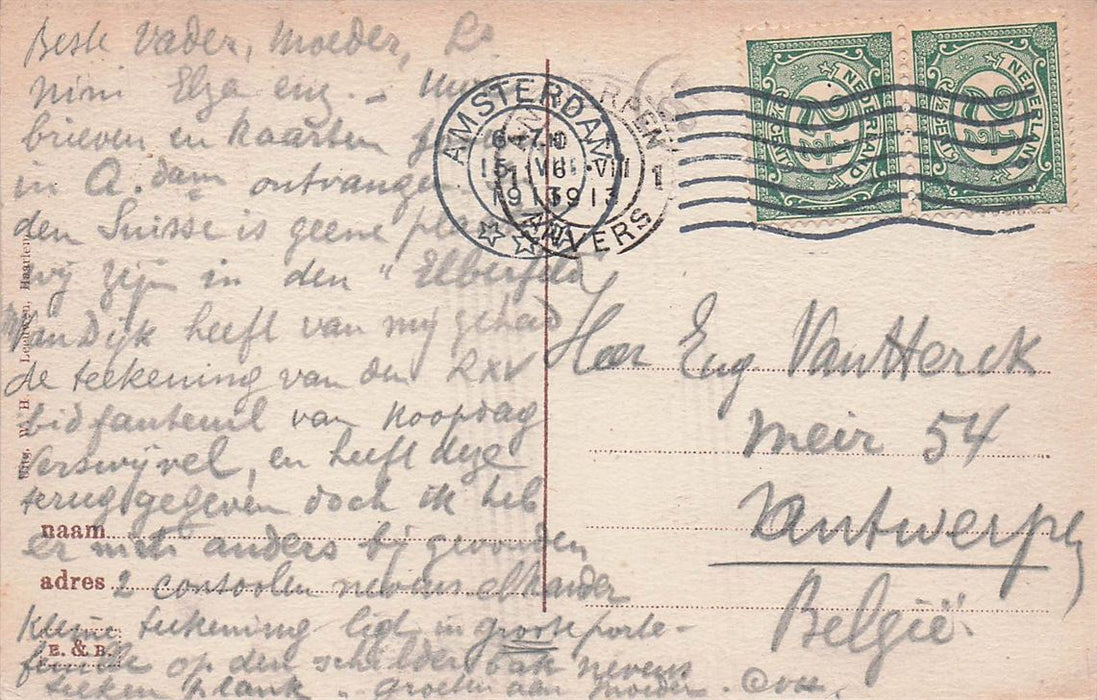 Beste Vader, Moeder,
Nini Elza enz. -
brieven en kaarten
in A.dam ontvangen
den Suisse is geene
wij zijn in den "Elberfeld"
Van Dijk heeft van mij gehad
de teekening van den
fauteuil van Koopdag
en heeft deze
terug gegeven doch ik heb
er niets anders bij gevonden
2 consolen nevens elkander
Kleine teekening ligt in groote porte-
feuille op den schildersbak nevens
teeken plank groeten aan Moeder.
naam
adres
E. & B.
Uitg. W. H. Leeuwen, Haarlem
AMSTERDAM
1913
1913
ANVERS
1
NEDERLAND
2½
CENT
NEDERLAND
2½
CENT
Heer Eug Van Herck
Meir 54
Antwerpen
België